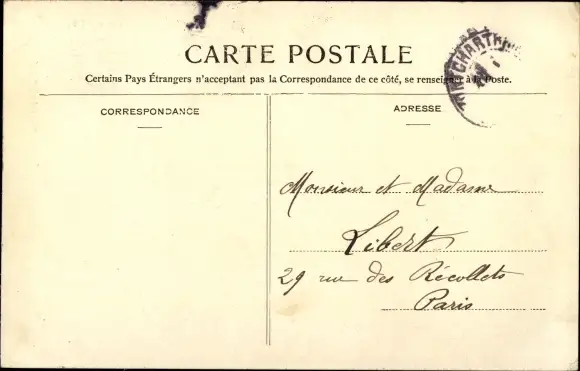 CARTE POSTALE
Certains Pays Étrangers n'acceptant pas la Correspondance de ce côté, se renseigner à la Poste.
CORRESPONDANCE
ADRESSE
Monsieur et Madame
Libert
29 rue des Récollets
Paris